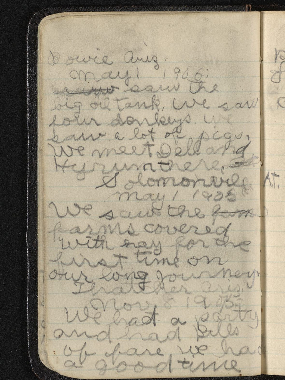 Bowie Ariz.
May 1 1905.
saw the
big oil tank. We saw
four donkeys. we
saw a lot of pigs,
We meet Dell and
Hyrum there,
Solomonville
May 1 1905
We saw the
farms covered
with hay for the
first time on
our long journey
Thatcher Ariz.
Nov 8 1905
We had a party
and had bills
of fare we had
a good time